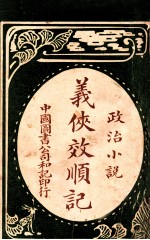 政治小説
義俠效順記
中國圖書公司和記印行